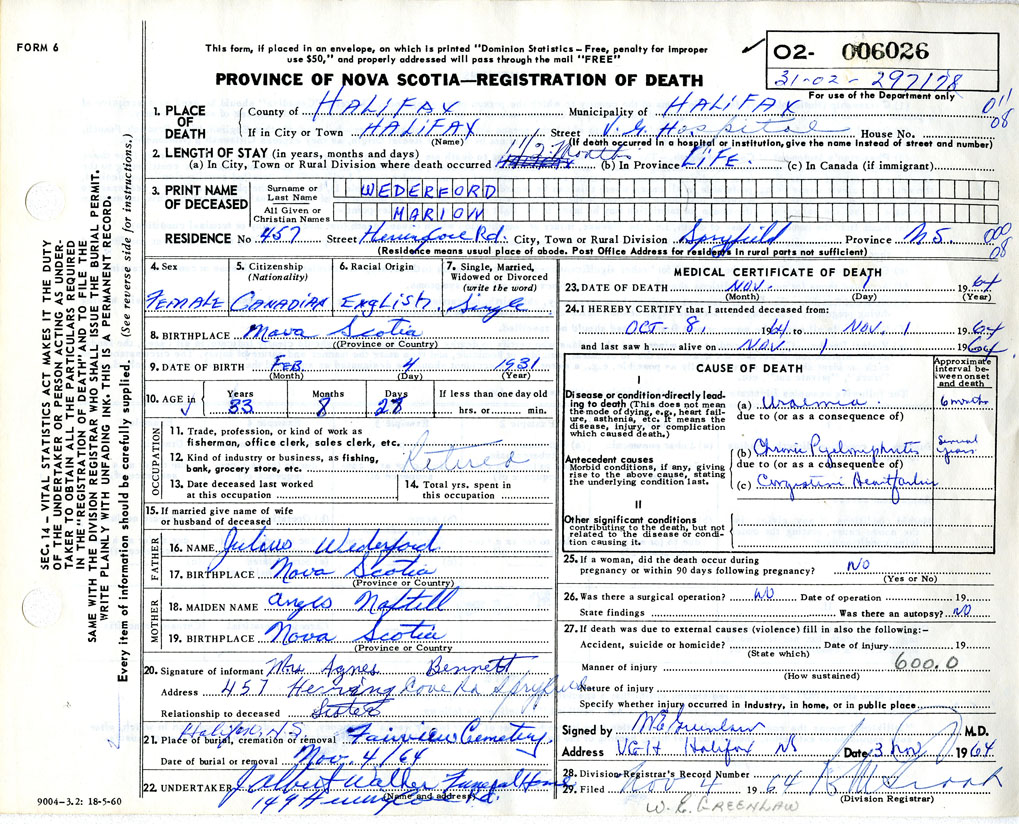 FORM 6
This form, if placed in an envelope, on which is printed "Dominion Statistics – Free, penalty for improper
use $50," and properly addressed will pass through the mail "FREE"
PROVINCE OF NOVA SCOTIA—REGISTRATION OF DEATH
✓ 02- 006026
31-02-297178
For use of the Department only
011
08
1. PLACE OF DEATH
County of HALIFAX Municipality of HALIFAX
If in City or Town HALIFAX Street V.G. Hospital House No.
(Name) (If death occurred in a hospital or institution, give the name instead of street and number)
2. LENGTH OF STAY (in years, months and days)
(a) In City, Town or Rural Division where death occurred 1 1/2 Months (b) In Province LIFE. (c) In Canada (if immigrant)
3. PRINT NAME OF DECEASED
Surname or Last Name WEDERFORD
All Given or Christian Names MARION
RESIDENCE No. 457 Street Herring Cove Rd. City, Town or Rural Division Spryfield Province N.S.
000
08
(Residence means usual place of abode. Post Office Address for residents in rural parts not sufficient)
4. Sex FEMALE
5. Citizenship (Nationality) CANADIAN
6. Racial Origin ENGLISH
7. Single, Married, Widowed or Divorced (write the word) Single
8. BIRTHPLACE Nova Scotia
(Province or Country)
9. DATE OF BIRTH FEB. 4 1931
(Month) (Day) (Year)
10. AGE in ✓ Years 33 Months 8 Days 28 If less than one day old
hrs. or min.
OCCUPATION
11. Trade, profession, or kind of work as
fisherman, office clerk, sales clerk, etc.
12. Kind of industry or business, as fishing,
bank, grocery store, etc. Retired
13. Date deceased last worked
at this occupation
14. Total yrs. spent in
this occupation
15. If married give name of wife
or husband of deceased
FATHER
16. NAME Julious Wederford
17. BIRTHPLACE Nova Scotia
(Province or Country)
MOTHER
18. MAIDEN NAME Anges Naftell
19. BIRTHPLACE Nova Scotia
(Province or Country)
20. Signature of informant Mrs Agnes Bennett
Address 457 Herring Cove Rd Spryfield
Relationship to deceased Sister
Halifax, N.S.
21. Place of burial, cremation or removal Fairview Cemetery
Date of burial or removal Nov. 4/64
22. UNDERTAKER J Albert Walker Funeral Home
149 Herring Rd.
(Name and address)
9004–3.2: 18-5-60
MEDICAL CERTIFICATE OF DEATH
23. DATE OF DEATH Nov. 1 1964
(Month) (Day) (Year)
24. I HEREBY CERTIFY that I attended deceased from:
OCT. 8, 1964 to Nov. 1 1964
and last saw h alive on Nov. 1 1964
CAUSE OF DEATH
Approximate interval between onset and death
I
Disease or condition directly leading to death (This does not mean the mode of dying, e.g., heart failure, asthenia, etc. It means the disease, injury, or complication which caused death.)
(a) Uraemia 6 months
due to (or as a consequence of)
Antecedent causes
Morbid conditions, if any, giving rise to the above cause, stating the underlying condition last.
(b) Chronic Pyelonephritis Several years
due to (or as a consequence of)
(c) Congestive Heart failure
II
Other significant conditions
contributing to the death, but not related to the disease or condition causing it.
25. If a woman, did the death occur during
pregnancy or within 90 days following pregnancy? NO
(Yes or No)
26. Was there a surgical operation? NO Date of operation 19
State findings Was there an autopsy? NO
27. If death was due to external causes (violence) fill in also the following:–
Accident, suicide or homicide? Date of injury 19
(State which)
Manner of injury 600.0
(How sustained)
Nature of injury
Specify whether injury occurred in industry, in home, or in public place
Signed by W E Greenlaw M.D.
Address V.G.H. Halifax NS Date 3 Nov 1964
28. Division Registrar's Record Number
29. Filed Nov 4 1964
(Division Registrar)
W. E. GREENLAW
SEC. 14 – VITAL STATISTICS ACT MAKES IT THE DUTY
OF THE UNDERTAKER OR PERSON ACTING AS UNDERTAKER
TO OBTAIN ALL THE PARTICULARS REQUIRED
IN THE "REGISTRATION OF DEATH" AND TO FILE THE
SAME WITH THE DIVISION REGISTRAR WHO SHALL ISSUE THE BURIAL PERMIT.
WRITE PLAINLY WITH UNFADING INK. THIS IS A PERMANENT RECORD.
Every item of information should be carefully supplied. (See reverse side for instructions.)